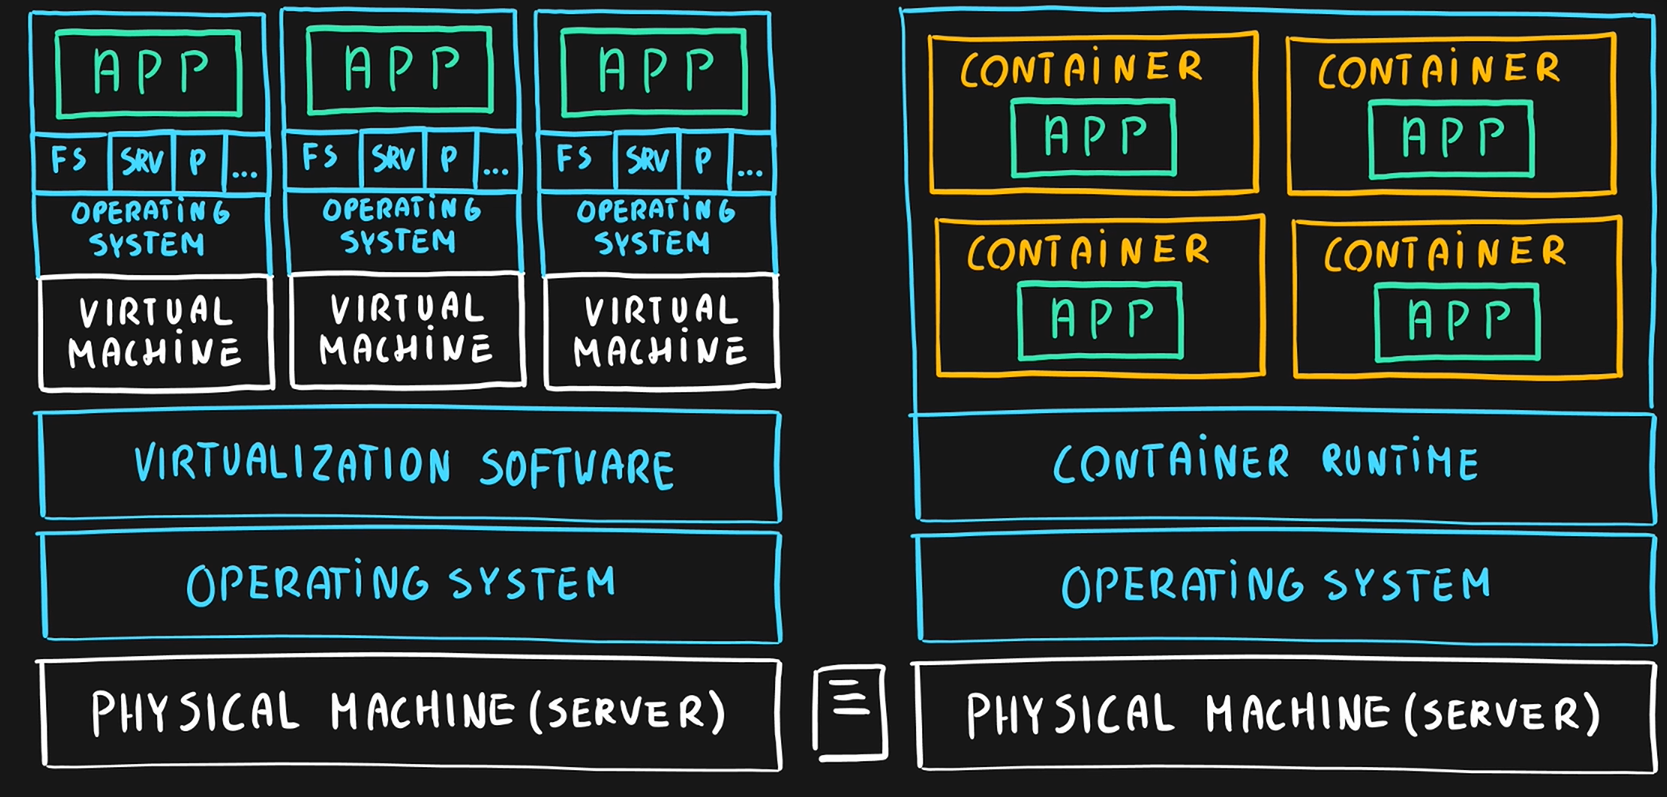 APP
FS SRV P ...
OPERATING
SYSTEM
VIRTUAL
MACHINE
APP
FS SRV P ...
OPERATING
SYSTEM
VIRTUAL
MACHINE
APP
FS SRV P ...
OPERATING
SYSTEM
VIRTUAL
MACHINE
VIRTUALIZATION SOFTWARE
OPERATING SYSTEM
PHYSICAL MACHINE (SERVER)
CONTAINER
APP
CONTAINER
APP
CONTAINER
APP
CONTAINER
APP
CONTAINER RUNTIME
OPERATING SYSTEM
PHYSICAL MACHINE (SERVER)